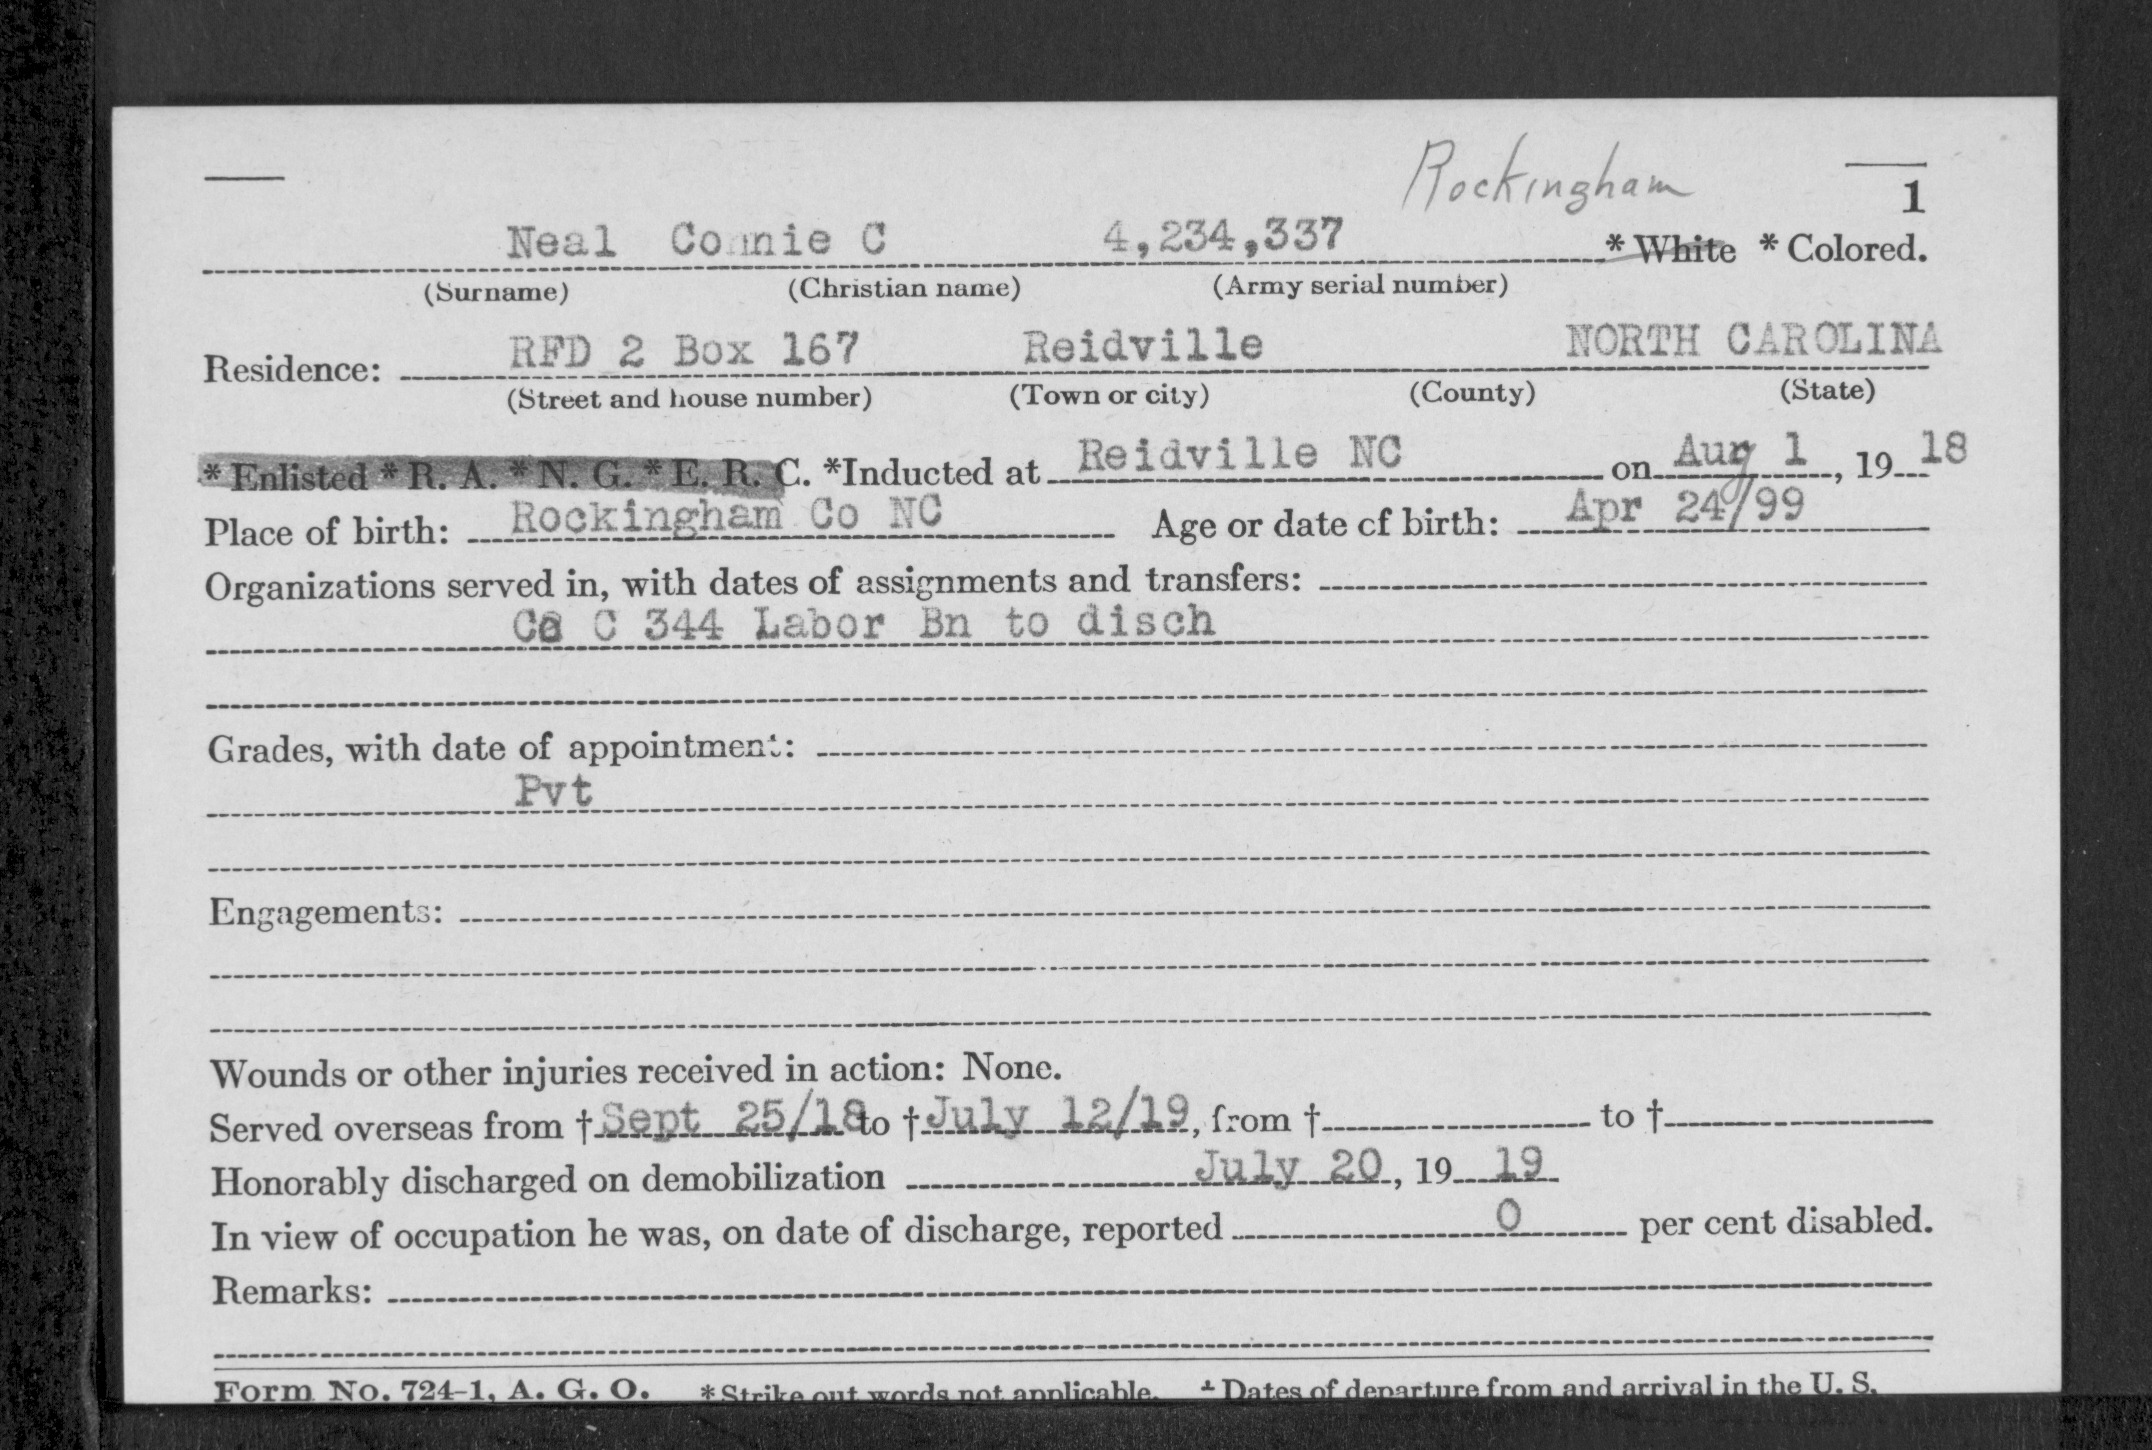 Rockingham
1
Neal Connie C 4,234,337 * White * Colored.
(Surname) (Christian name) (Army serial number)
RFD 2 Box 167 Reidville NORTH CAROLINA
Residence:
(Street and house number) (Town or city) (County) (State)
* Enlisted * R. A. * N. G. * E. R. C. *Inducted at Reidville NC on Aug 1, 19 18
Place of birth: Rockingham Co NC Age or date of birth: Apr 24/99
Organizations served in, with dates of assignments and transfers:
Co C 344 Labor Bn to disch
Grades, with date of appointment:
Pvt
Engagements:
Wounds or other injuries received in action: None.
Served overseas from † Sept 25/18 to † July 12/19, from † to †
Honorably discharged on demobilization July 20, 19 19
In view of occupation he was, on date of discharge, reported 0 per cent disabled.
Remarks:
Form No. 724-1, A. G. O. * Strike out words not applicable. † Dates of departure from and arrival in the U. S.